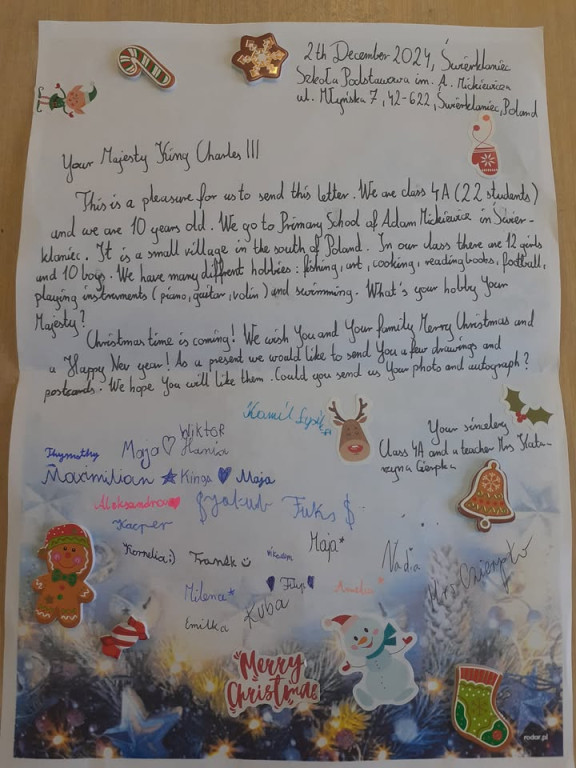 2th December 2024, Świerklaniec
Szkoła Podstawowa im. A. Mickiewicza
ul. Młyńska 7, 42-622, Świerklaniec, Poland
Your Majesty King Charles III
This is a pleasure for us to send this letter. We are class 4A (22 students)
and we are 10 years old. We go to Primary School of Adam Mickiewicz in Świer-
klaniec. It is a small village in the south of Poland. In our class there are 12 girls
and 10 boys. We have many diffrent hobbies: fishing, art, cooking, reading books, football,
playing instruments (piano, guitar, violin) and swimming. What's your hobby Your
Majesty?
Christmas time is coming! We wish You and Your family Merry Christmas and
a Happy New year! As a present we would like to send You a few drawings and
postcards. We hope You will like them. Could you send us Your photo and autograph?
Your sincerley
Class 4A and a teacher Mrs Kata-
rzyna Cierpka
Kamil
Wiktor
Thymothy Maja Hania
Maximilian Kinga Maja
Aleksandra Jakub Fuks $
Kacper
Kornelia :) Franek Maja* Nadia
Milena* Filip Amelia*
Emilka Kuba
Merry
Christmas
rodker.pl